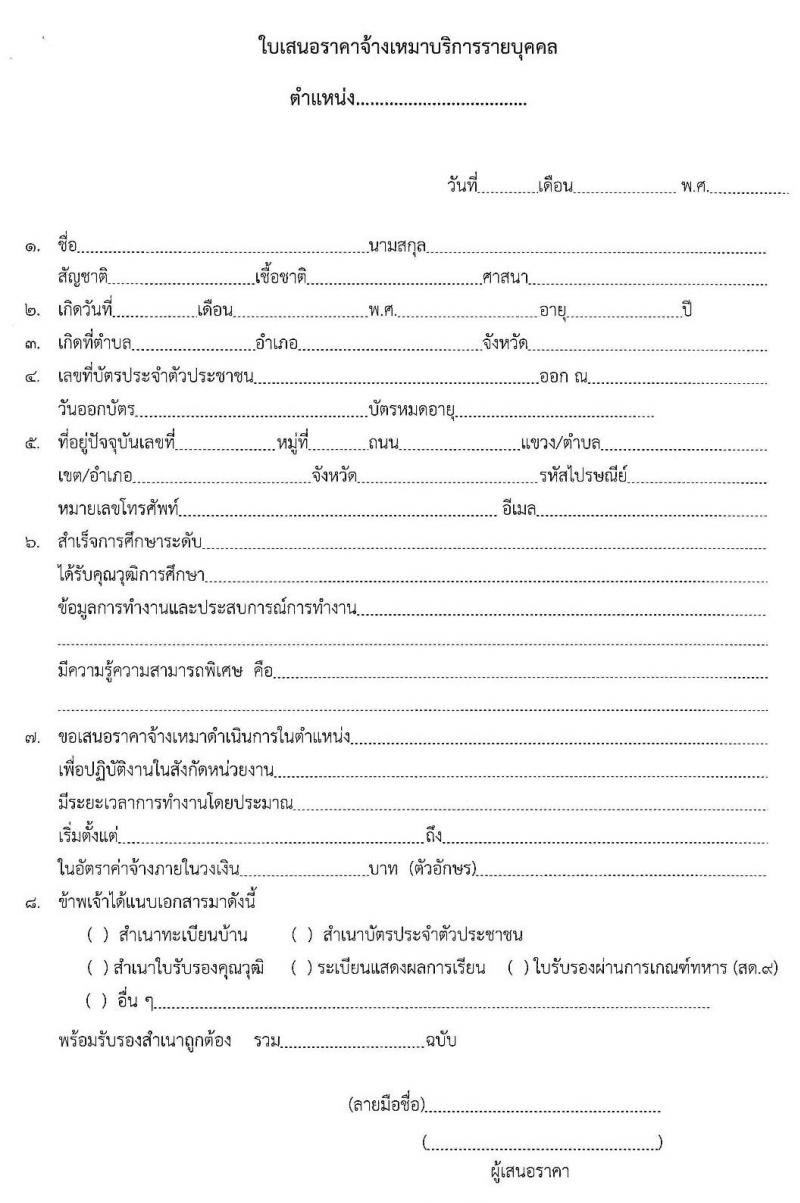 ใบเสนอราคาจ้างเหมาบริการรายบุคคล
ตำแหน่ง....................................
วันที่.............เดือน...................... พ.ศ.................
๑. ชื่อ..............................................................นามสกุล........................................................................
สัญชาติ...............................เชื้อชาติ.....................................ศาสนา..................................................
๒. เกิดวันที่..................เดือน.............................พ.ศ..............................อายุ........................ปี
๓. เกิดที่ตำบล..........................อำเภอ.......................................จังหวัด..................................................
๔. เลขที่บัตรประจำตัวประชาชน............................................................ออก ณ......................................
วันออกบัตร.................................................บัตรหมดอายุ..........................................
๕. ที่อยู่ปัจจุบันเลขที่.....................หมู่ที่.............ถนน..........................แขวง/ตำบล...................................
เขต/อำเภอ......................................จังหวัด.......................................รหัสไปรษณีย์..............................
หมายเลขโทรศัพท์................................................................... อีเมล.................................................
๖. สำเร็จการศึกษาระดับ........................................................................................................................
ได้รับคุณวุฒิการศึกษา.......................................................................................................................
ข้อมูลการทำงานและประสบการณ์การทำงาน.......................................................................................
......................................................................................................................................................
มีความรู้ความสามารถพิเศษ คือ.........................................................................................................
......................................................................................................................................................
๗. ขอเสนอราคาจ้างเหมาดำเนินการในตำแหน่ง........................................................................................
เพื่อปฏิบัติงานในสังกัดหน่วยงาน.........................................................................................................
มีระยะเวลาการทำงานโดยประมาณ.....................................................................................................
เริ่มตั้งแต่.................................................................ถึง.....................................................................
ในอัตราค่าจ้างภายในวงเงิน...........................บาท (ตัวอักษร)..............................................................
๘. ข้าพเจ้าได้แนบเอกสารมาดังนี้
( ) สำเนาทะเบียนบ้าน ( ) สำเนาบัตรประจำตัวประชาชน
( ) สำเนาใบรับรองคุณวุฒิ ( ) ระเบียนแสดงผลการเรียน ( ) ใบรับรองผ่านการเกณฑ์ทหาร (สด.๙)
( ) อื่น ๆ......................................................................................................................
พร้อมรับรองสำเนาถูกต้อง รวม..............................ฉบับ
(ลายมือชื่อ)..................................................
(.................................................)
ผู้เสนอราคา